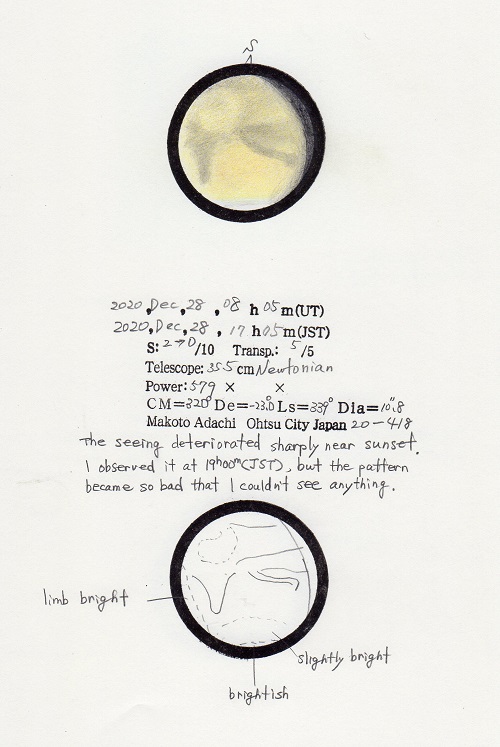 S
2020, Dec, 28, 08 h 05 m (UT)
2020, Dec, 28, 17 h 05 m (JST)
S: 2→0/10 Transp.: 5/5
Telescope: 35.5 cm Newtonian
Power: 579 × ×
CM=320° De=-23.0 Ls=339° Dia=10".8
Makoto Adachi Ohtsu City Japan 20-418
The seeing deteriorated sharply near sunset.
I observed it at 19h00m (JST), but the pattern
became so bad that I couldn't see anything.
limb bright
slightly bright
brightish